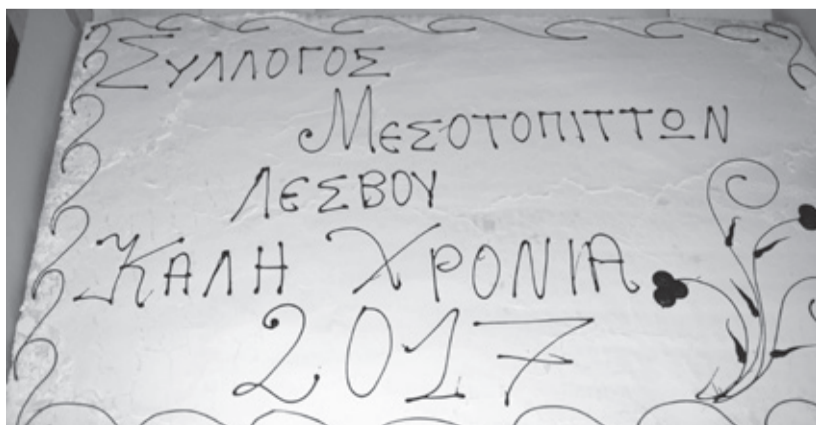 ΣΥΛΛΟΓΟΣ
ΜΕΣΟΤΟΠΙΤΤΩΝ
ΛΕΣΒΟΥ
ΚΑΛΗ ΧΡΟΝΙΑ
2017